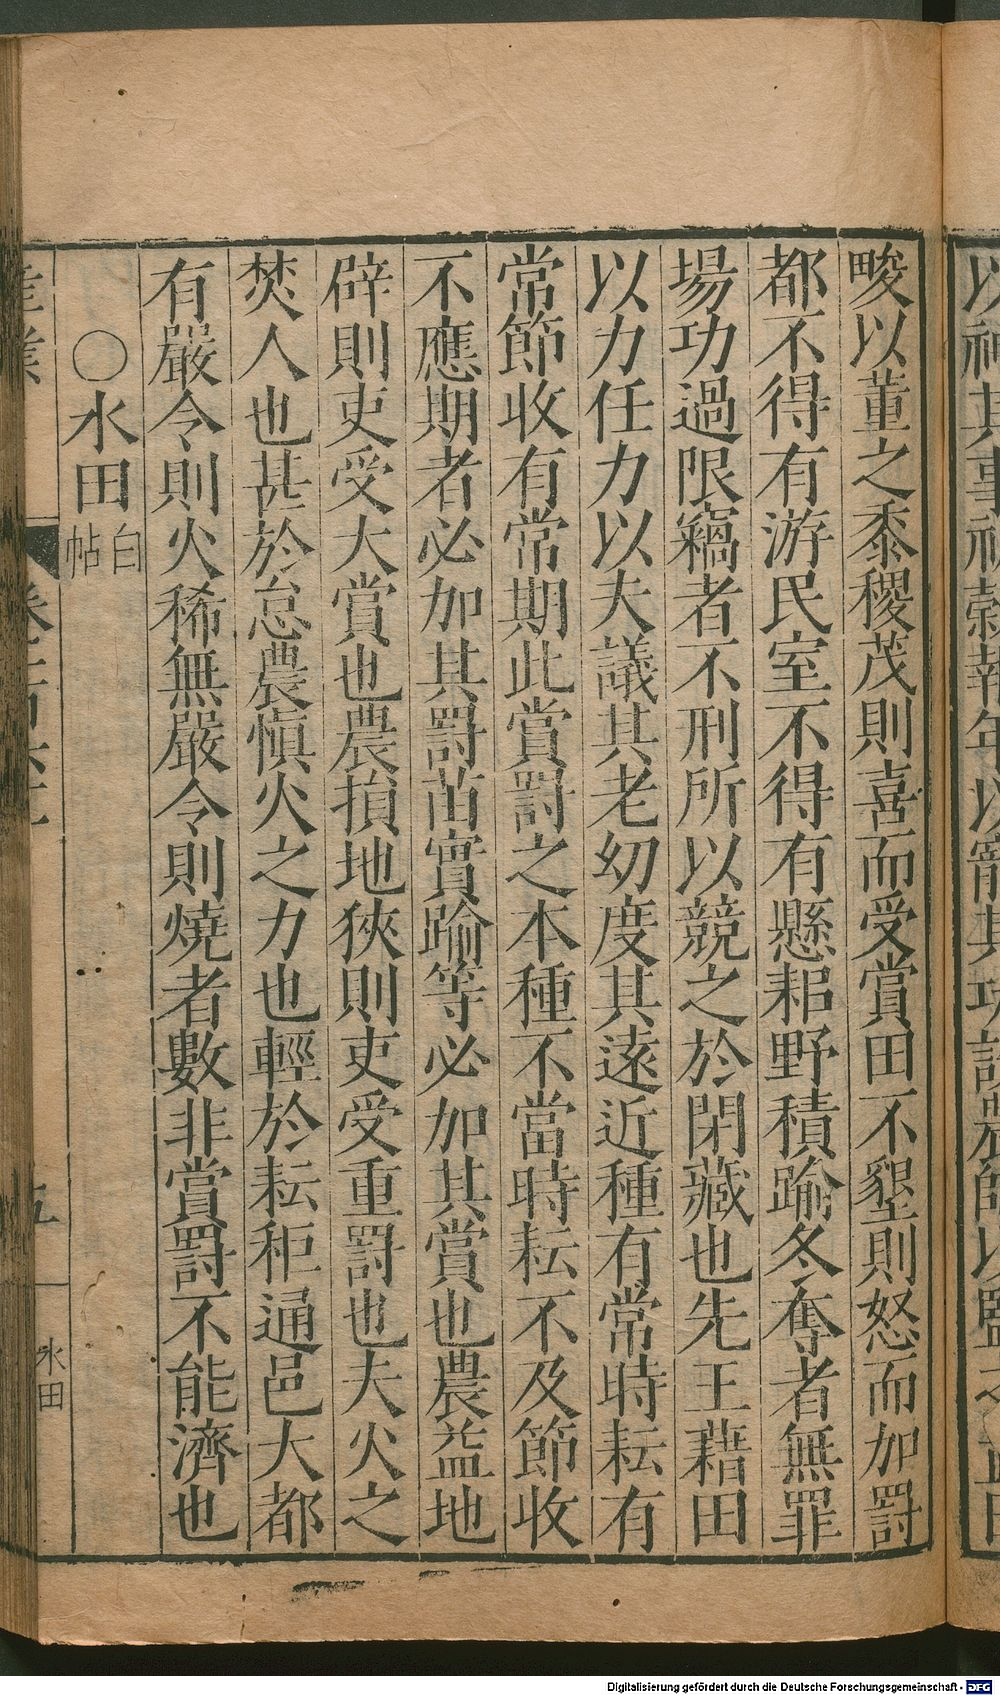 畯以董之黍稷茂則喜而受賞田不墾則怒而加罰
都不得有游民室不得有懸耜野積踰冬奪者無罪
場功過限竊者不刑所以競之於閉藏也先王藉田
以力任力以夫議其老幼度其遠近種有常時耘有
常節收有常期此賞罰之本種不當時耘不及節收
不應期者必加其罰苗實踰等必加其賞也農益地
辟則吏受大賞也農損地狹則吏受重罰也夫火之
焚人也甚於怠農愼火之力也輕於耘秬通邑大都
有嚴令則火稀無嚴令則燒者數非賞罰不能濟也
○水田白帖
產業
五
水田
Digitalisierung gefördert durch die Deutsche Forschungsgemeinschaft - DFG